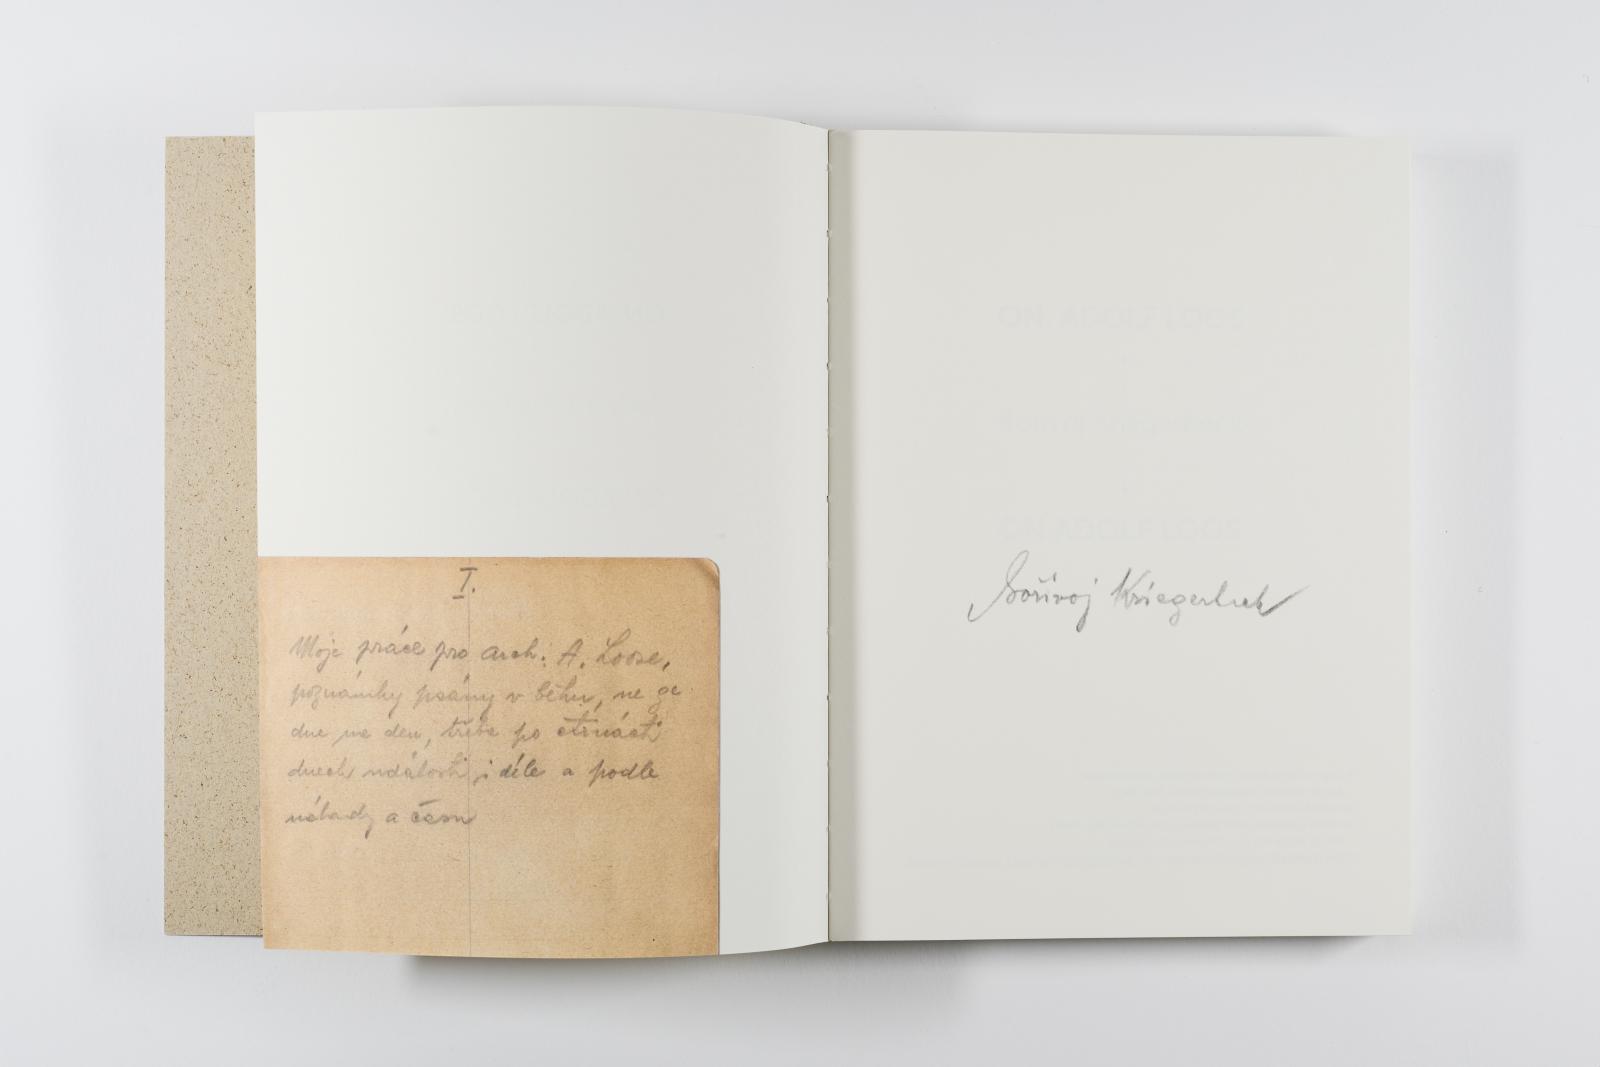 I.
Moje práce pro arch. A. Loose,
poznámky psány v běhu, ne ze
dne na den, třeba po čtrnácti
dnech událostí i déle a podle
nálady a času
Bořivoj Kriegerbeck
ON ADOLF LOOS
ON ADOLF LOOS